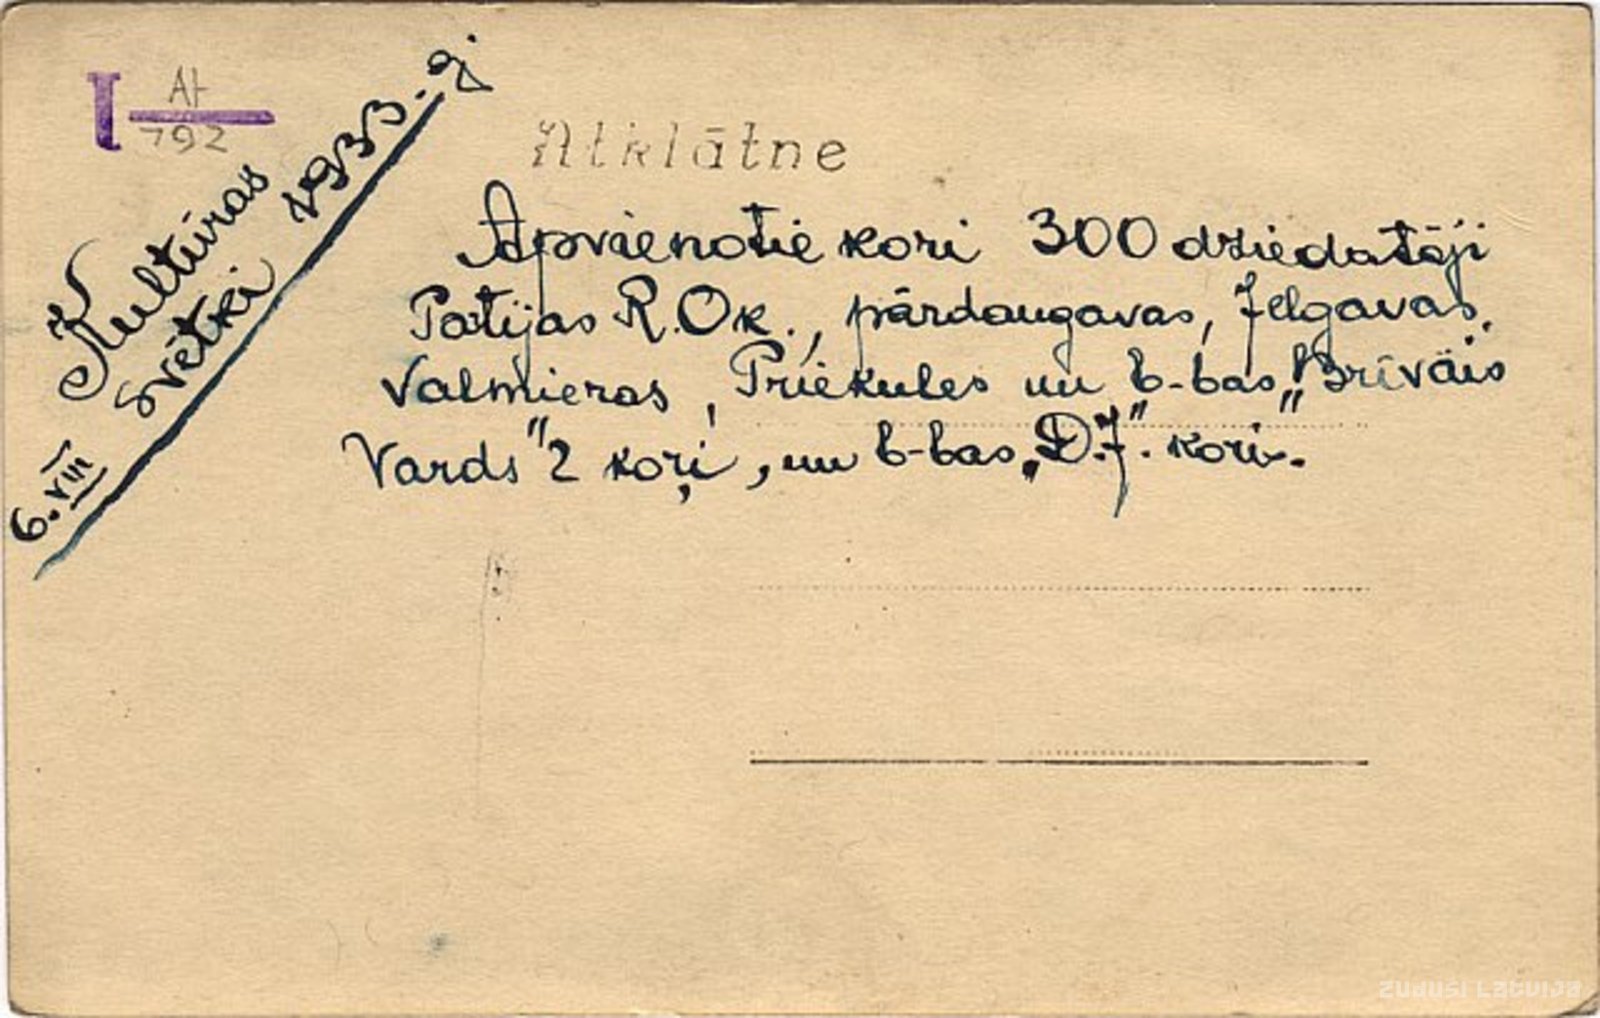 I At
792
Kultūras
svētki 1933. g.
6. VIII
Atklātne
Apvienotie kori 300 dziedatāji
Patijas R. Ok., pārdaugavas, Jelgavas,
Valmieras, Priekules un b-bas „Brīvais
Vards" 2 koŗi, un b-bas „D.J". kori.
Zudusi Latvija